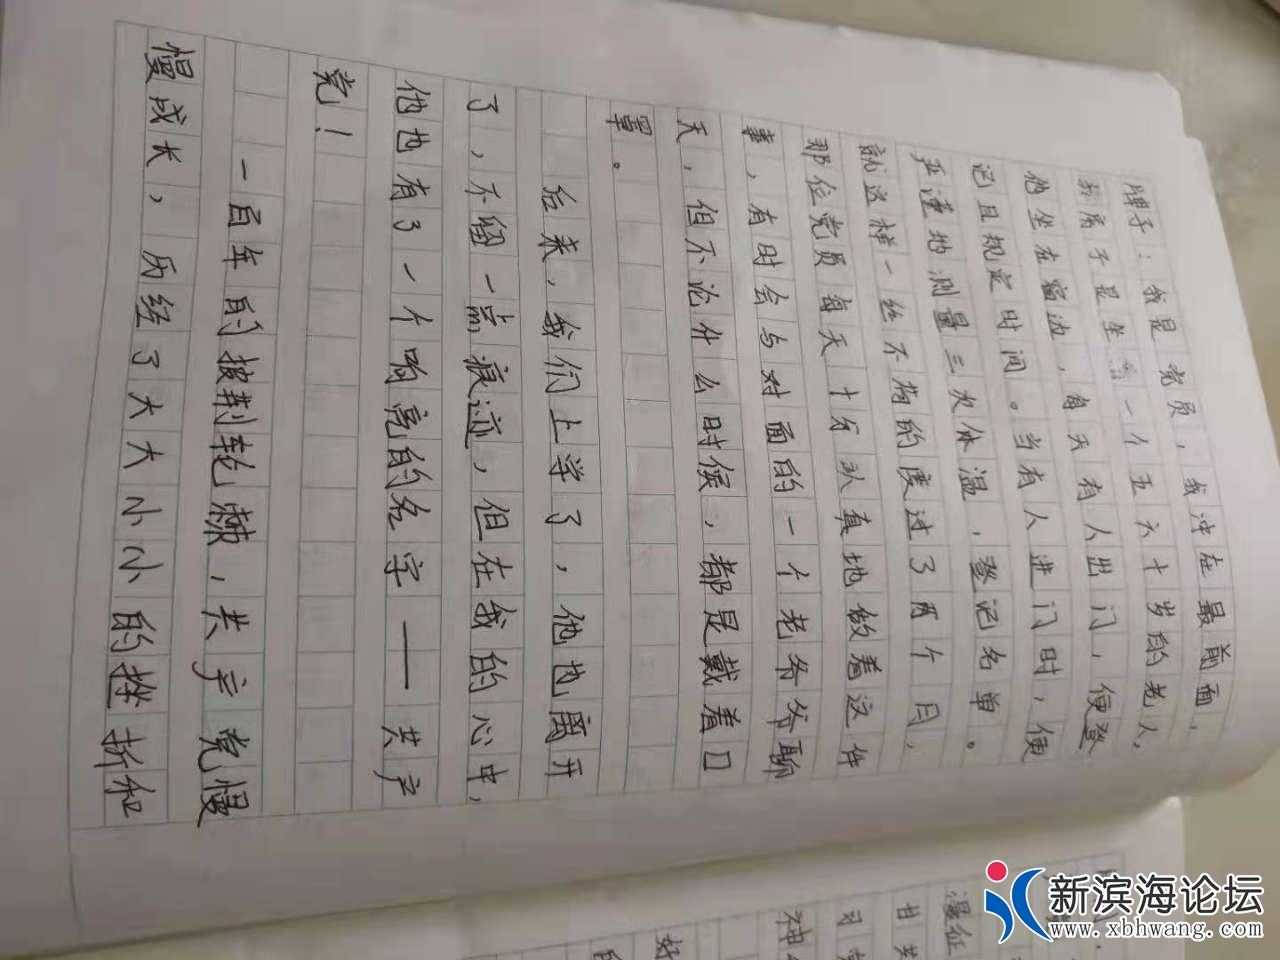 牌子：我是党员，我冲在最前面，
新席子是坐着一个五六十岁的老人，
他坐在窗边，每天有人出门，便登
记且规定时间。当有人进门时，便
严谨地测量三次体温，登记名单。
就这样一丝不苟的度过了两个月，
那位党员每天十分认真地做着这件
事，有时会与对面的一个老爷爷聊
天，但不论什么时候，都是戴着口
罩。
后来，我们上学了，他也离开
了，不留一点痕迹，但在我的心中，
他也有了一个响亮的名字——共产
党！
一百年的披荆轮棘，共产党慢
慢成长，历经了大大小小的挫折和
漫征
甘其
神
好
新滨海论坛
www.xbhwang.com